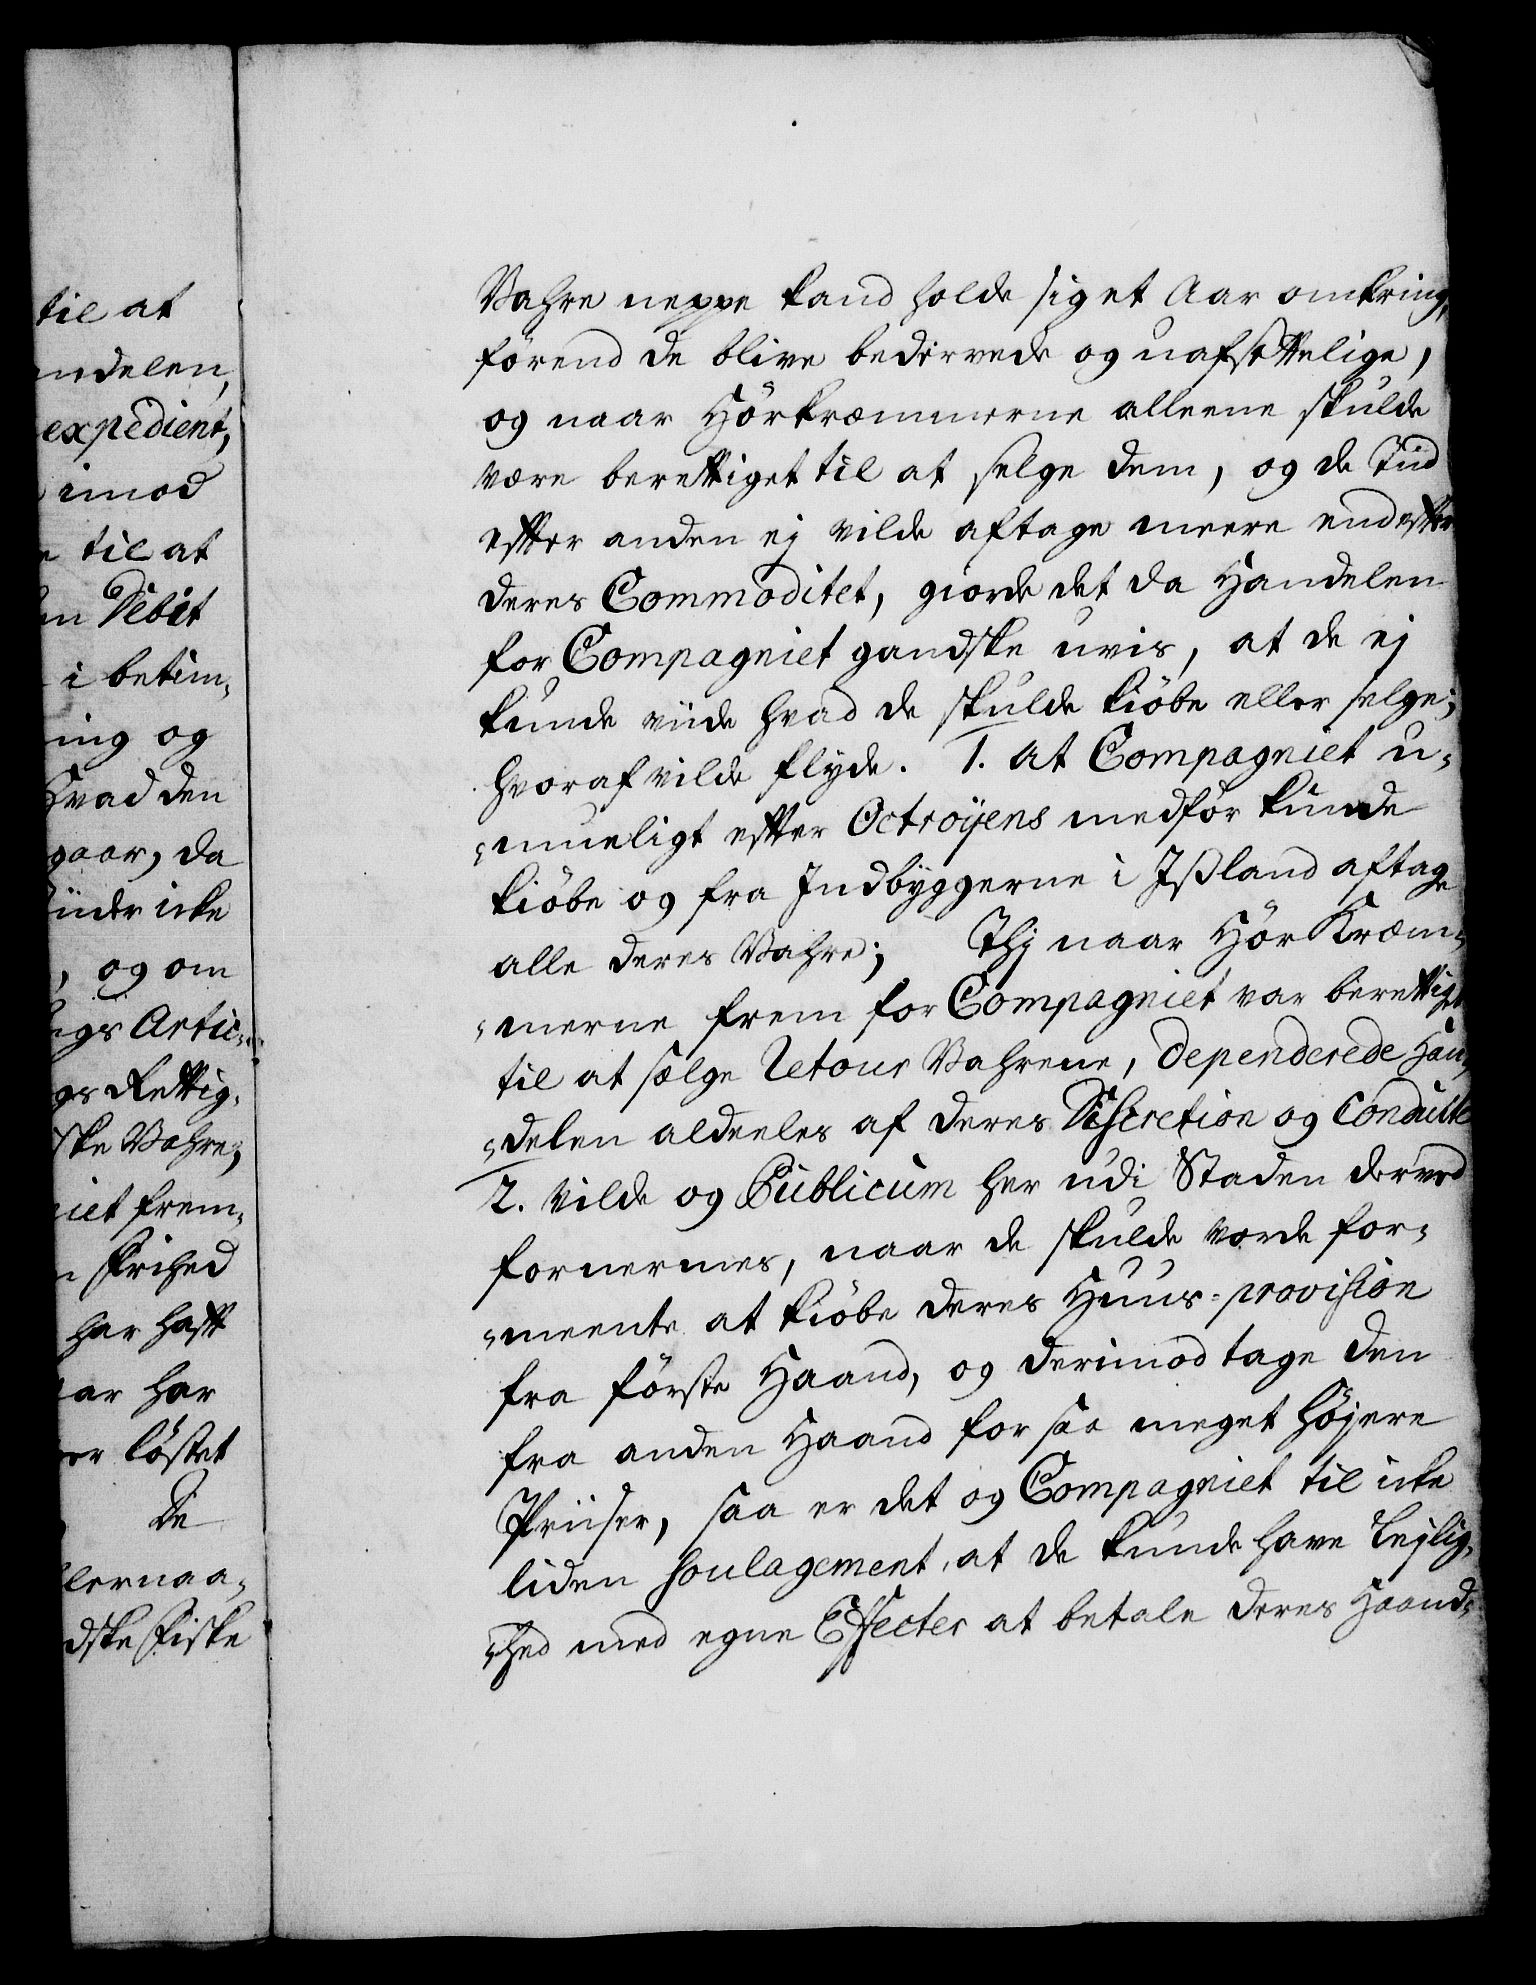 til at
ndelen,
expedient,
imod
e til at
en Debit
i betim„
ning og
Hvad den
gaar, da
iider icke
, og om
ngs Artic„
gs Rettig„
ske Vahre,
niet frem„
n Friihed
har hafft
aar har
er löftet
De
lernaa„
dske Fiske
Vahre neppe kand holde sig et Aar omkring,
förend de blive bedervede og uafsettelige,
og naar Hörkræmmerne alleene skulde
være berettiget til at selge dem, og de Tiid
effter anden ej vilde aftage meere end effter
deres Commoditet, giorde det da Handelen
for Compagniet gandske uvis, at de ej
kunde viide hvad de skulde kiöbe eller selge;
hvoraf vilde flyde. 1. at Compagniet u„
„mueligt effter Octroijens medför kunde
kiöbe og fra Indbyggerne i Jßland aftage
alle deres Vahre; Thj naar Hör Kræm„
„merne frem for Compagniet var berettiget
til at sælge Retour Vahrene, dependerede Han„
„delen aldeeles af deres Discretion og Conduitte
2. Vilde og Publicum her udi Staden derved
fornermes, naar de skulde vorde for„
„meente at kiöbe deres Huus-provision
fra förste Haand, og derimod tage den
fra anden Haand for saa meget höjere
Priiser, saa er det og Compagniet til icke
liden soulagement, at de kunde have Lejlig„
„hed med egne Effecter at betale deres Haand„